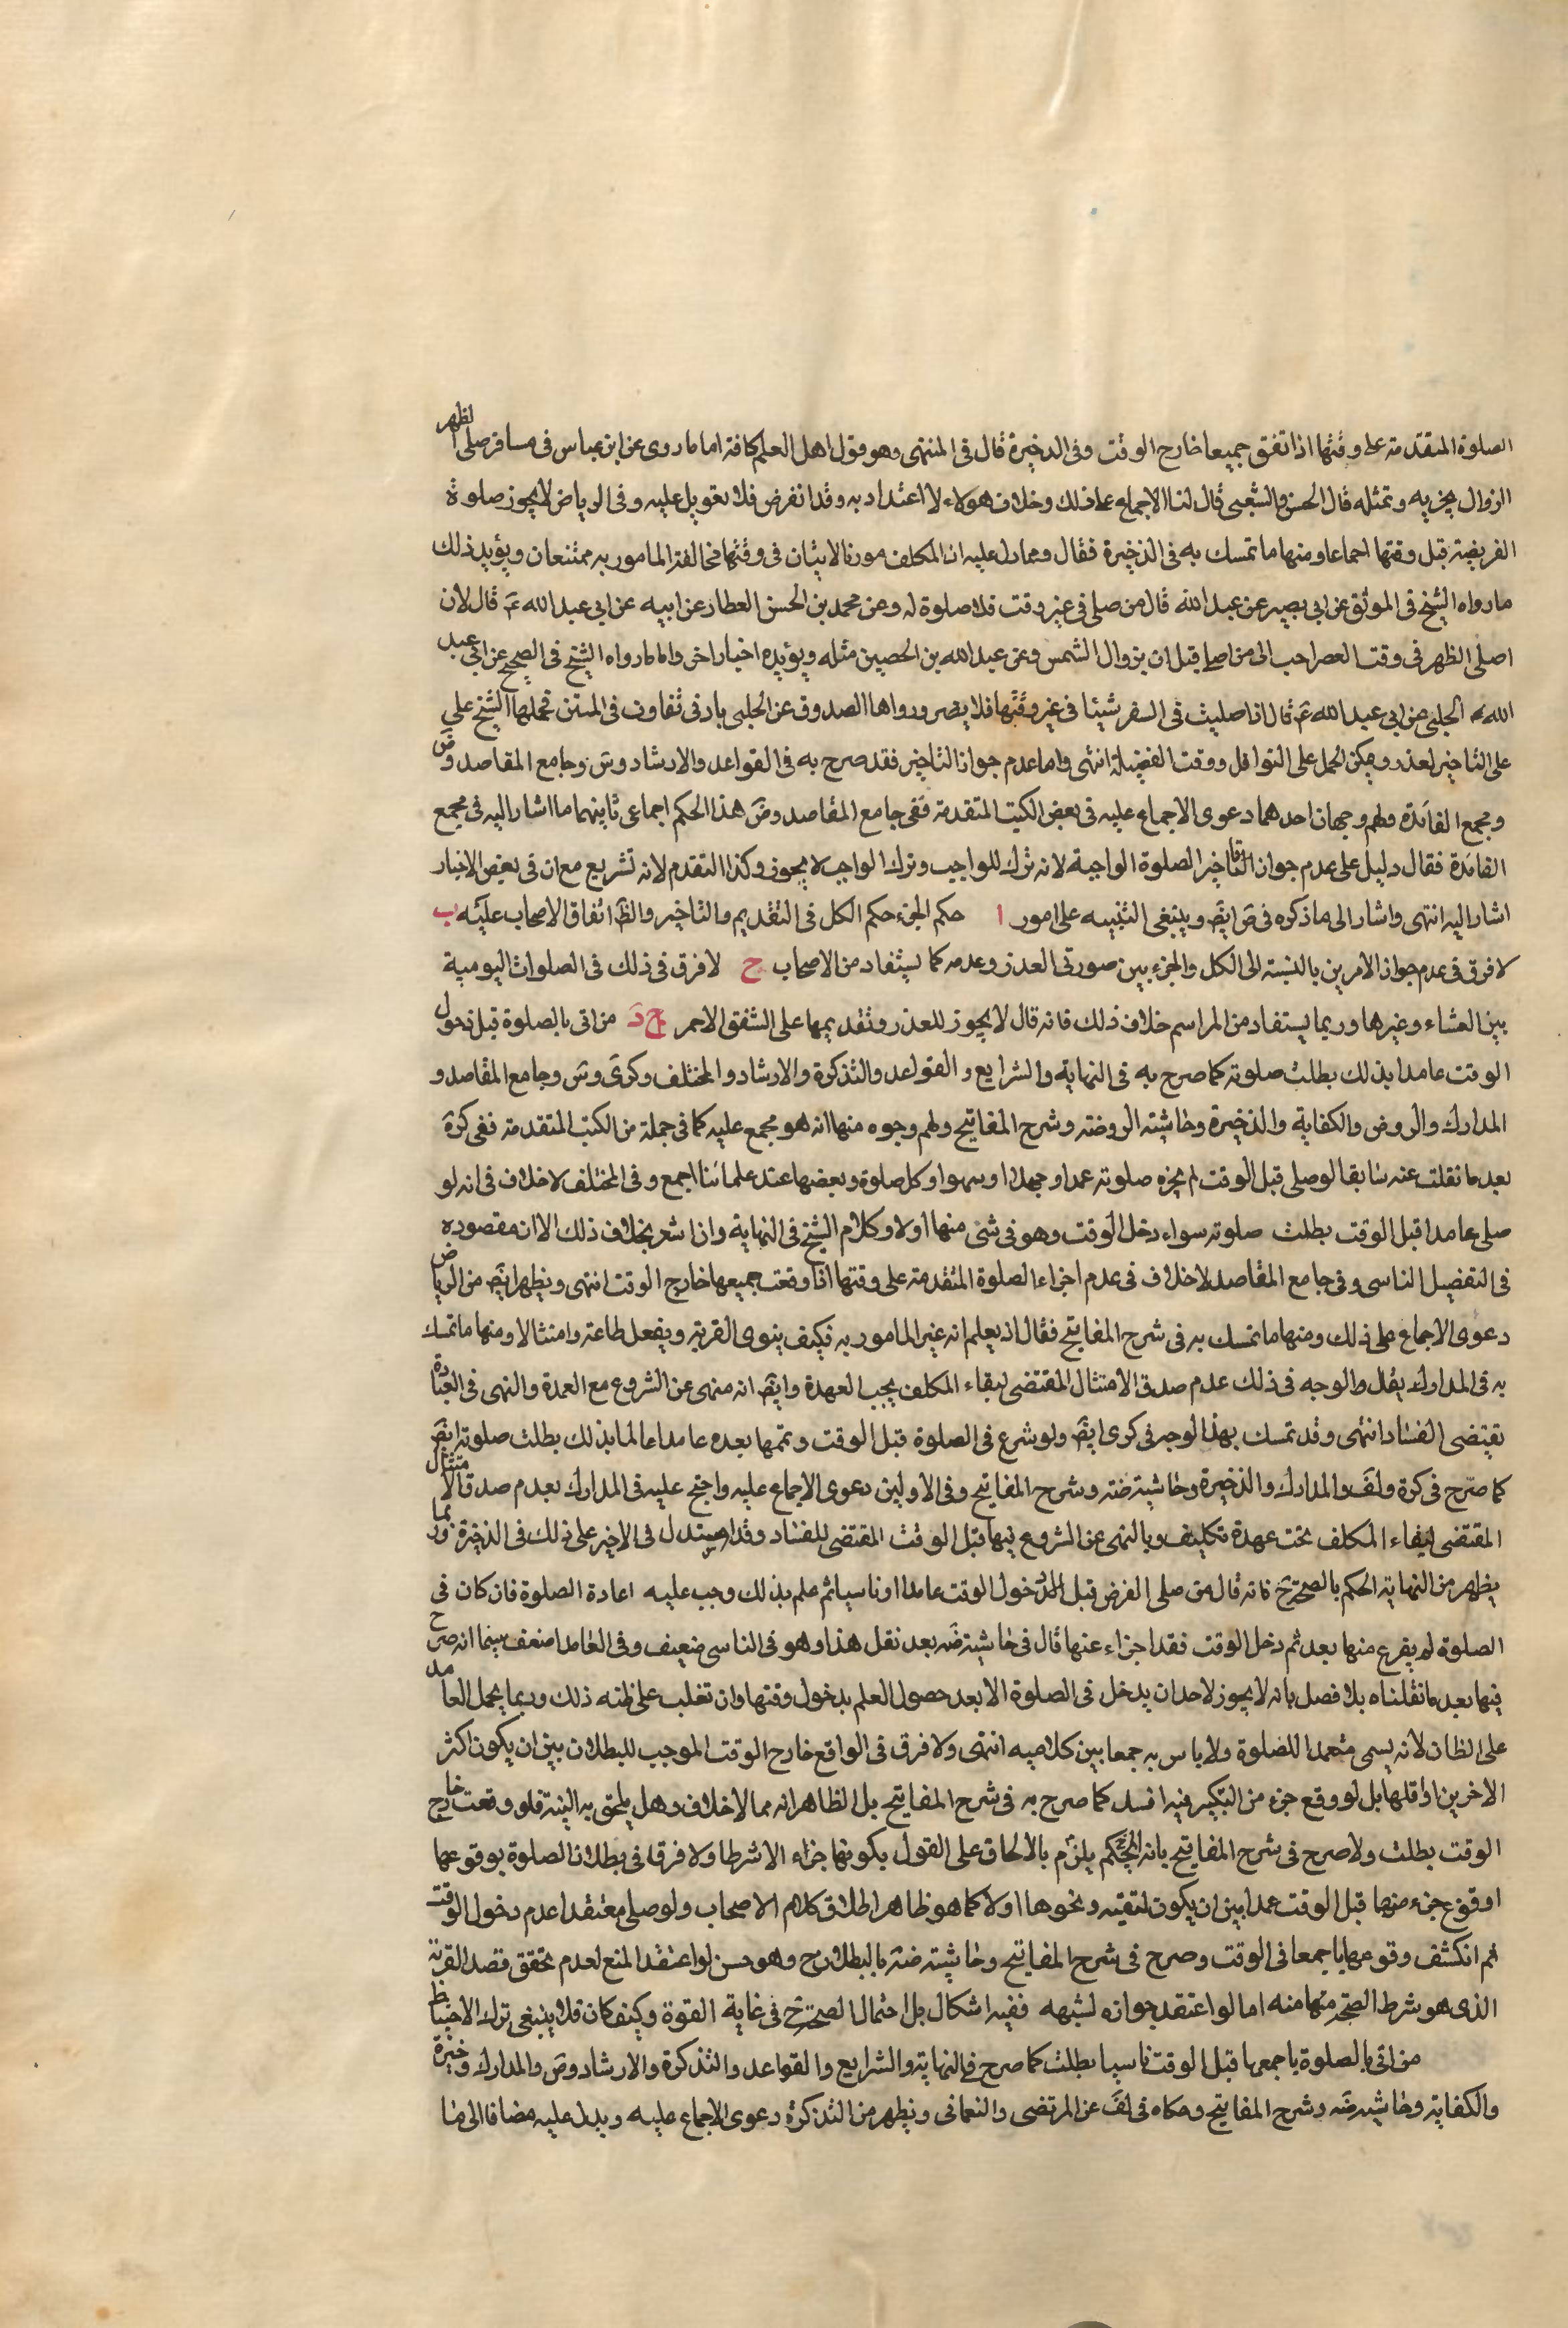 الصلوة المتقدمة على وقتها اذا تفق جميعا خارج الوقت وفى الدخيرة قال فى المنتهى وهو قول اهل العلم كافة اما ما روى عن ابن عباس فى مسافر صلى الظهر
الزوال يجزيه وتمثله قال الحسن والشعبى قال لنا الاجماع على ذلك وخلاف هولاء لا اعتداد به وقد انفرض فلا تعويل عليه وفى الرياض لا يجوز صلوة
الفريضة قبل وقتها اجماعا ومنها ما تمسك به فى الذخيرة فقال ومما دل عليه ان المكلف مورنا لاتيان فى وقتها فمخالفة المامور به ممتنعان ويؤيد ذلك
ما رواه الشيخ فى الموثق عن ابى بصير عن عبد الله قال من صلى فى غير وقت فلا صلوة له وعن محمد بن الحسن العطار عن ابيه عن ابى عبد الله ع قال لان
اصلى الظهر فى وقت العصر احب الى من اصلى قبل ان يزوال الشمس وعن عبد الله بن الحصين مثله ويؤيده اخبار اخر واما ما رواه الشيخ فى الصحيح عن ابى عبد
الله الحلبى عن ابى عبد الله ع قال اذا صليت فى السفر شيئا فى غير وقتها فلا يضر ورواها الصدوق عن الحلبى بادنى تفاوت فى المتن فحملها الشيخ على
على التاخير لعذر ويمكن الحمل على النوافل ووقت الفضيلة انتهى واما عدم جواز التاخير فقد صرح به فى القواعد والارشاد وس وجامع المقاصد وض
ومجمع الفائدة ولهم وجهان احدهما دعوى الاجماع عليه فى بعض الكتب المتقدمة ففى جامع المقاصد وض هذا الحكم اجماعى ثانيهما ما اشار اليه فى مجمع
الفائدة فقال دليل على عدم جواز التاخير الصلوة الواجبة لانه ترك للواجب وترك الواجب لا يجوز وكذا التقدم لانه تشريع مع ان فى بعض الاخبار
اشار اليه انتهى واشار الى ما ذكره فى ض ايض وينبغى التنبيه على امور ا حكم الجزء حكم الكل فى التقديم والتاخير والظ اتفاق الاصحاب عليه ب
لا فرق فى عدم جواز الامرين بالنسبة الى الكل والجزء بين صورتى العذر وعدمه كما يستفاد من الاصحاب ج لا فرق فى ذلك فى الصلوات اليومية
بين العشاء وغيرها وربما يستفاد من المراسم خلاف ذلك فانه قال لا يجوز للعذر وتقديمها على الشفق الاحمر د من اتى بالصلوة قبل دخول
الوقت عامدا بذلك بطلت صلوته كما صرح به فى النهاية والشرايع والقواعد والتذكرة والارشاد والمختلف وكرى وس وجامع المقاصد و
المدارك والروض والكفاية والذخيرة وحاشية الروضة وشرح المفاتيح ولهم وجوه منها انه هو مجمع عليه كما فى جملة من الكتب المتقدمة ففى كرة
بعد ما نقلت عنه سابقا لو صلى قبل الوقت لم يجزه صلوته عمدا وجهلا او سهوا وكل صلوة وبعضها عند علمائنا اجمع وفى المختلف لا خلاف فى انه لو
صلى عامدا قبل الوقت بطلت صلوته سواء دخل الوقت وهو فى شئ منها اولا وكلام الشيخ فى النهاية واذا شعر بخلاف ذلك الا ان مقصوده
فى التفضيل الناسى وفى جامع المقاصد لا خلاف فى عدم اجزاء الصلوة المتقدمة على وقتها اذا وقعت جميعها خارج الوقت انتهى ويظهر ايض من الرياض
دعوى الاجماع على ذلك ومنها ما تمسك به فى شرح المفاتيح فقال اذ يعلم انه غير المامور به فكيف ينوى القربة ويفعل طاعة وامتثالا ومنها ما تمسك
به فى المدارك يقل والوجه فى ذلك عدم صدق الامتثال المقتضى لبقاء المكلف يجب العهدة وايض انه منهى عن الشروع مع العمدة والنهى فى العبادة
يقتضى الفساد انتهى وقد تمسك بهذا الوجه فى كرى ايض ولو شرع فى الصلوة قبل الوقت وتمها بعده عامدا عالما بذلك بطلت صلوته ايض
كما صرح فى كرة ولف والمدارك والذخيرة وحاشية ضة وشرح المفاتيح وفى الاولين دعوى الاجماع عليه واحتج عليه فى المدارك بعدم صدق الامتثال
المقتضى لبقاء المكلف تحت عهدة تكليف وبالنهى عن الشروع فيها قبل الوقت المقتضى للفساد وقد استدل فى الاخير على ذلك فى الذخيرة وربما
يظهر من النهاية الحكم بالصحة ح فانه قال من صلى الفرض قبل دخول الوقت عامدا او ناسيا ثم علم بذلك وجب عليه اعادة الصلوة فان كان فى
الصلوة لم يفرغ منها بعد ثم دخل الوقت فقد اجزاء عنها قال فى حاشية ضه بعد نقل هذا وهو فى الناسى ضعيف وفى العامد اضعف سيما انه صرح
فيها بعد ما نقلناه بلا فصل بانه لا يجوز لاحد ان يدخل فى الصلوة الا بعد حصول العلم بدخول وقتها وان تغلب على ظنه ذلك وربما يحمل العامد
على الظان لانه يسمى متعمدا للصلوة ولا باس به جمعا بين كلاميه انتهى ولا فرق فى الواقع خارج الوقت الموجب للبطلان بين ان يكون اكثر
الاخرين او اقلها بل لو وقع جزء من التكبير فيه افسد كما صرح به فى شرح المفاتيح بل الظاهر انه مما لا خلاف وهل يلحق به النية فلو وقعت خارج
الوقت بطلت ولا صرح فى شرح المفاتيح بانه يلزم بالالحاق على القول بكونها جزاء الا شرطا ولا فرق فى بطلان الصلوة بوقوعها
او وقوع جزء منها قبل الوقت عمدا بين ان يكون لتقية ونحوها اولا كما هو ظاهر اطلاق كلام الاصحاب ولو صلى معتقدا عدم دخول الوقت
ثم انكشف وقوعها باجمعها فى الوقت وصرح فى شرح المفاتيح وحاشية ضة بالبطلان ح وهو حسن لو اعتقد المنع لعدم تحقق قصد القربة
الذى هو شرط الصحة منها منه اما لو اعتقد جوازه لشبهه ففيه اشكال بل احتمال الصحة ح فى غاية القوة وكيف كان فلا ينبغى ترك الاحتياط
من اتى بالصلوة باجمعها قبل الوقت ناسيا بطلت كما صرح فى النهاية والشرايع والقواعد والتذكرة والارشاد وض والمدارك وخيرة
والكفاية وحاشية ضه وشرح المفاتيح وحكاه فى لف عن المرتضى والنعمانى ويظهر من التذكرة دعوى الاجماع عليه ويدل عليه مضافا الى ما